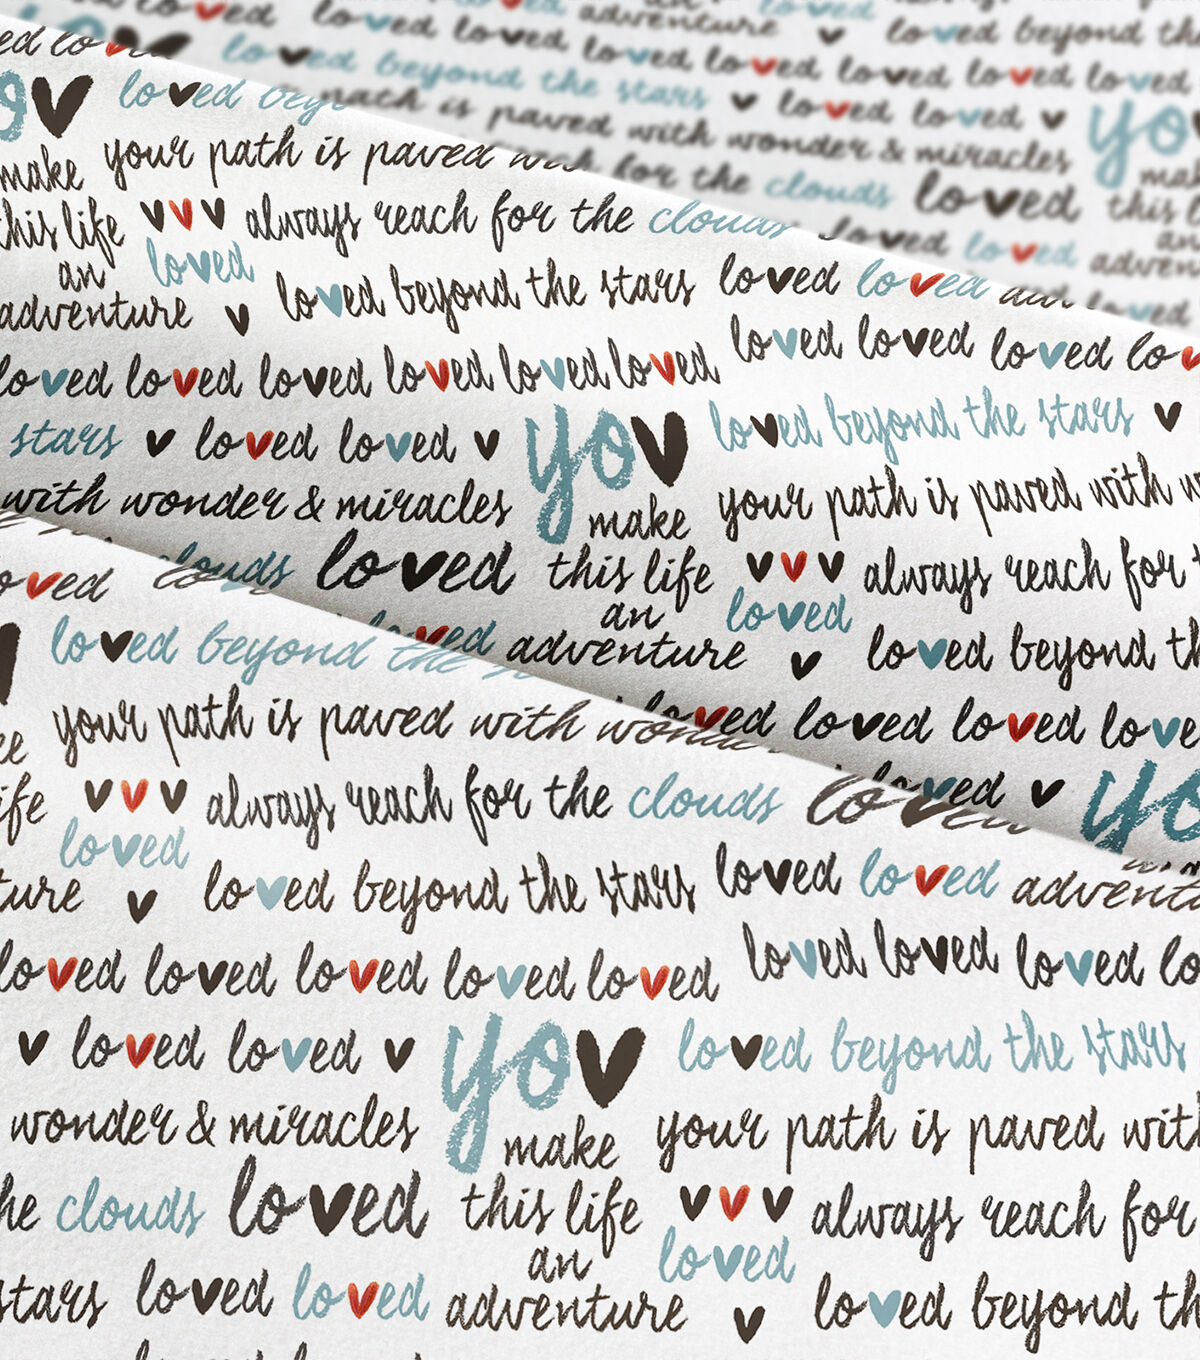 loved loved loved adventure loved beyond the
loved beyond the stars loved loved loved loved loved
path is paved with wonder & miracles loved loved yo
for the clouds loved this
loved loved
ed lo
loved
make your path is paved
this life always reach for the clouds
an loved
adventure loved beyond the stars loved loved
loved loved loved loved loved loved loved loved loved
stars loved loved you loved beyond the stars
with wonder & miracles make your path is paved with
clouds loved this life always reach for
an loved
adventure loved beyond th
loved loved loved love
loved yo
loved beyond the
your path is paved with
ife always reach for the clouds
loved
ture loved beyond the stars loved loved adventu
loved loved loved loved loved loved loved loved lo
loved loved you loved beyond the stars
wonder & miracles make your path is paved with
he clouds loved this life always reach for
an loved
stars loved loved adventure loved beyond th